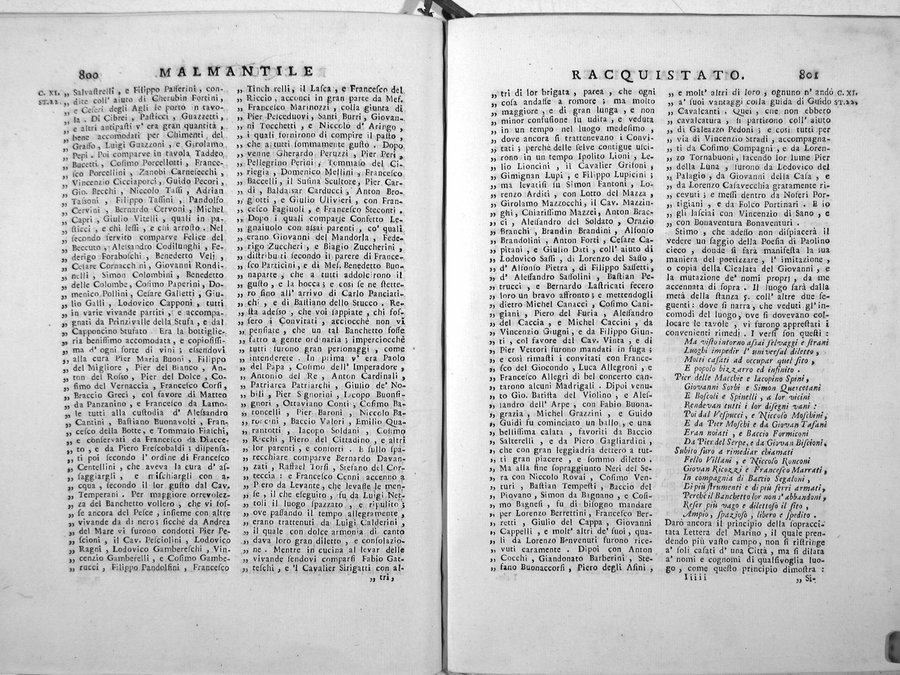 800 MALMANTILE
C. XI.
ST. 22.
„ Salvastrelli , e Filippo Passerini, con-
„ dite coll' aiuto di Cherubin Fortini,
„ e Ceseri degli Agli le portò n tavo-
„ la . Di Cibrei , Pasticci , Guazzetti ,
„ e altri antipasti v' era gran quantità ,
„ bene accomodati per Chimenti del
„ Grasso, Luigi Guazzoni , e Girolamo
„ Pepi . Poi comparve in tavola Taddeo
„ Bucetti , Cosimo Porcellotti , France-
„ sco Porcellini , Zanobi Carnesecchi ,
„ Vincenzio Cicciaporci , Guido Pecori ,
„ Gio. Becchi , Niccolò Tassi , Adrian
„ Tassoni , Filippo Tassini , Pandolfo
„ Cervini , Bernardo Cervoni , Michel
„ Capri , Giulio Vitelli , quali in pa-
„ sticci , e chi lessi , e chi arrosto . Nel
„ secondo servito comparve Felice del
„ Beccuto , Alessandro Codilunghi , Fe-
„ derigo Foraboschi , Benedetto Velj ,
„ Cesare Cornacchini, Giovanni Rondi-
„ nelli , Simon Colombini , Benedetto
„ delle Colombe, Cosimo Paperini, Do-
„ menico Pollini , Cesare Galletti , Giu-
„ lio Galli , Lodovico Capponi , tutti
„ in varie vivande partiti , e accompa-
„ gnati da Prinzivalle della Stufa , e dal
„ Capponcino Stufato . Era la bottiglie-
„ ria benissimo accomodata, e copiosissi-
„ ma d' ogni sorte di vini ; essendovi
„ alla cura Pier Maria Buoni , Filippo
„ del Migliore , Pier del Bianco , An-
„ ton del Rosso , Pier del Dolce , Co-
„ simo del Vernaccia , Francesco Corsi,
„ Braccio Greci , col favore di Matteo
„ da Panzanino , e Francesco da Lamo-
„ le tutti alla custodia d' Alessandro
„ Cantini , Bastiano Buonavolti , Fran-
„ cesco della Botte , e Tommaso Fiaschi,
„ e conservati da Francesco da Diacce-
„ to , e da Piero Frescobaldi ; dispensa-
„ ti poi secondo l' ordine di Francesco
„ Centellini , che aveva la cura d' as-
„ saggiargli , e mischiargli con a-
„ cqua , secondo il lor gusto dal Cav.
„ Temperani . Per maggiore orrevolez-
„ za del Banchetto vollero , che vi fos-
„ se ancora del Pesce , insieme con altre
„ vivande da di nero; sicchè da Andrea
„ del Mare vi furono condotti Pier Pe-
„ scioni , il Cav. Pesciolini , Lodovico
„ Ragni , Lodovico Gambereschi , Vin-
„ cenzio Gamberelli , e Cosimo Gambe-
„ rucci , Filippo Pandolfini , Francesco
„ Tinch relli , il Lasca , e Francesco del
„ Riccio , acconci in gran parte da Mes.
„ Francesco Marinozzi , colla giunta di
„ Pier Pesceduovi , Santi Burri , Giovan-
„ ni Tocchetti , e Niccolò d' Aringo ,
„ i quali fornirono di compire il pasto ,
„ che a tutti sommamente gustò . Dopo
„ venne Gherardo Peruzzi , Pier Peri ,
„ Pellegrino Perini , Tommaso del Ci-
„ riegia , Domenico Mellini , Francesco
„ Baccelli , il Susina Scultore , Pier Car-
„ di , Baldassar Carducci , Anton Bro-
„ giotti , e Giulio Ulivieri , con Fran-
„ cesco Fagiuoli , e Francesco Seconti .
„ Dopo i quali comparse Confetto Le-
„ gnaiuolo con assai parenti , co' quali
„ erano Giovanni del Mandorla , Fede-
„ rigo Zuccheri , e Biagio Zuccherini ,
„ distribuiti secondo il parere di France-
„ sco Particini , e di Mes. Benedetto Buo-
„ naparte , che a tutti addolcirono il
„ gusto , e la bocca ; e così se ne stette-
„ ro fino all' arrivo di Carlo Panciati-
„ chi , e di Bastiano dello Stucco . Re-
„ sta adesso , che voi sappiate , chi fos-
„ sero i Convitati , acciocchè non vi
„ pensiate , che un tal Banchetto fosse
„ fatto a gente ordinaria ; imperciocchè
„ tutti furono gran personaggi , come
„ intenderete . In prima v' era Paolo
„ del Papa , Cosimo dell' Imperadore ,
„ Antonio del Re , Anton Cardinali ,
„ Patriarca Patriarchi , Giulio de' No-
„ bili , Pier Signorini , Iacopo Buonsi-
„ gnori , Ottaviano Conti , Cosimo Ba-
„ roncelli , Pier Baroni , Niccolò Ba-
„ roccini , Baccio Valori , Emilio Qua-
„ rantotti , Iacopo Soldani , Cosimo
„ Ricchi , Piero del Cittadino , e altri
„ lor parenti , e consorti . E sullo spa-
„ recchiare comparse Bernardo Davan-
„ zati , Raffael Torsi , Stefano del Cor-
„ teccia : e Francesco Cenni accennò a
„ Piero da Levante, che levasse le men-
„ se , il che eseguito , fu da Luigi Net-
„ toli il luogo spazzato , e ripulito ;
„ ove passando il tempo allegramente ,
„ erano trattenuti da Luigi Calderini ,
„ il quale con dolce armonia di canto
„ dava loro gran diletto , e consolazio-
„ ne . Mentre in cucina al levar delle
„ vivande sendovi comparsi Fabio Gat-
„ teschi , e 'l Cavalier Sirigatti con al-
„ tri,
RACQUISTATO. 801
„ tri di lor brigata , parea , che ogni
„ cosa andasse a romore ; ma molto
„ maggiore , e di gran lunga , e non
„ minor confusione fu udita , e veduta
„ in un tempo nel luogo medesimo ,
„ dove ancora si trattenevano i Convi-
„ tati ; perchè delle selve contigue usci-
„ rono in un tempo Ipolito Lioni , Le-
„ lio Lioncini , il Cavalier Grifoni ,
„ Gimignan Lupi , e Filippo Lupicini ;
„ ma levatisi su Simon Fantoni , Lo-
„ renzo Arditi , con Lotto del Mazza ,
„ Girolamo Mazzocchi , il Cav. Mazzin-
„ ghi , Chiarissimo Mazzei , Anton Brac-
„ ci , Alessandro del Soldato , Orazio
„ Branchi , Brandin Brandini , Alfonso
„ Brandolini , Anton Forti , Cesare Ca-
„ pitani , e Giulio Dati , coll' aiuto di
„ Lodovico Sassi , di Lorenzo del Sasso ,
„ d' Alfonso Pietra , di Filippo Sassetti,
„ d' Alessandro Sassolini , Bastian Pe-
„ trucci , e Bernardo Lastricati fecero
„ loro un bravo affronto ; e mettendogli
„ dietro Michel Canacci , Cosimo Cani-
„ giani , Piero del Furia , Alessandro
„ del Caccia , e Michel Caccini , da
„ Vincenzio Giugni , e da Filippo Giun-
„ ti , col favore dal Cav. Vinta , e di
„ Pier Vettori furono mandati in fuga ;
„ e così rimasti i convitati con France-
„ sco del Giocondo , Luca Allegroni , e
„ Francesco Allegri di bel concerto can-
„ tarono alcuni Madrigali . Dipoi venu-
„ to Gio. Batista del Violino , e Ales-
„ sandro dell' Arpe , con Fabio Buona-
„ grazia , Michel Grazzini , e Guido
„ Guidi fu cominciato un ballo , e una
„ bellissima calata , favoriti da Baccio
„ Salterelli , e da Piero Gagliardini ,
„ che con gran leggiadria dettero a tut-
„ ti gran piacere , e sommo diletto .
„ Ma alla fine sopraggiunto Neri del Se-
„ ra con Niccolò Rovai , Cosimo Ven-
„ turi , Bastian Tempesti , Baccio del
„ Piovano , Simon da Bagnano , e Cosi-
„ mo Bagnesi , fu di bisogno mandare
„ per Lorenzo Berrettini , Francesco Ber-
„ retti , Giulio del Cappa , Giovanni
„ Cappelli , e molt' altri de' suoi , qua-
„ li da Lorenzo Benvenuti furono rice-
„ vuti caramente . Dipoi con Anton
„ Cocchi , Giandonato Barberini , Ste-
„ fano Buonaccorsi , Piero degli Asini ,
C. XI.
ST. 22.
„ e molt' altri di loro , ognuno n' andò
„ a' suoi vantaggi colla guida di Guido
„ Cavalcanti . Quei , che non ebbero
„ cavalcatura , si partirono coll' aiuto
„ di Galeazzo Pedoni ; e così tutti per
„ via di Vincenzio Stradi , accompagna-
„ ti da Cosimo Compagni , e da Loren-
„ zo Tornabuoni , facendo lor lume Pier
„ della Luna , furono da Lodovico del
„ Palagio , da Giovanni della Casa , e
„ da Lorenzo Casavecchia gratamente ri-
„ cevuti ; e messi dentro da Noferi Por-
„ tigiani , e da Folco Portinari . E io
„ gli lasciai con Vincenzio di Sano , e
„ con Bonaventura Bonaventuri .
Stimo , che adesso non dispiacerà il
vedere un saggio della Poesia di Paolino
cieco , donde si farà manifesta la sua
maniera del poetizzare , l' imitazione ,
o copia della Cicalata del Giovanni , e
la mutazione de' nomi proprj , da me
accennata di sopra . Il luogo sarà dalla
metà della stanza 5. coll' altre due se-
guenti : dove si narra, che veduti gl' in-
comodi del luogo, ove si dovevano col-
locare le tavole , vi furono aprestati i
convenienti rimedj . I versi son questi :
Ma visto intorno assai selvaggi e strani
Luoghi impedir l' universal diletto ,
Molti casati ad occupar quel sito ,
E popolo bizzarro ed infinito .
Pier delle Macchie e Iacopino Spini ,
Giovanni Sorbi e Simon Quercettani
E Boscoli e Spinelli , a lor vicini
Rendevan tutti i lor disegni vani :
Poi dal Vespucci , e Niccolò Moschini ,
E da Pier Moschi e da Giovan Tafani
Eran noiati , e Baccio Formiconi
Da Pier del Serpe, e da Giovan Biscioni,
Subito furo a rimediar chiamati
Fello Villani , e Niccolò Ronconi
Giovan Ricozzi e Francesco Marrati ,
In compagnia di Bastio Segaloni ,
Di più strumenti e di più ferri armati,
Perchè il Banchetto lor non s' abbandoni,
Resser più vago e dilettoso il sito ,
Ampio , spazioso , libero e spedito .
Darò ancora il principio della sopracci-
tata Lettera del Marino , il quale pren-
dendo più vasto campo , non si ristringe
a' soli casati d' una Città , ma si dilata
a' nomi e cognomi di qualsivoglia luo-
go , come questo principio dimostra :
Iiiii „ Si-